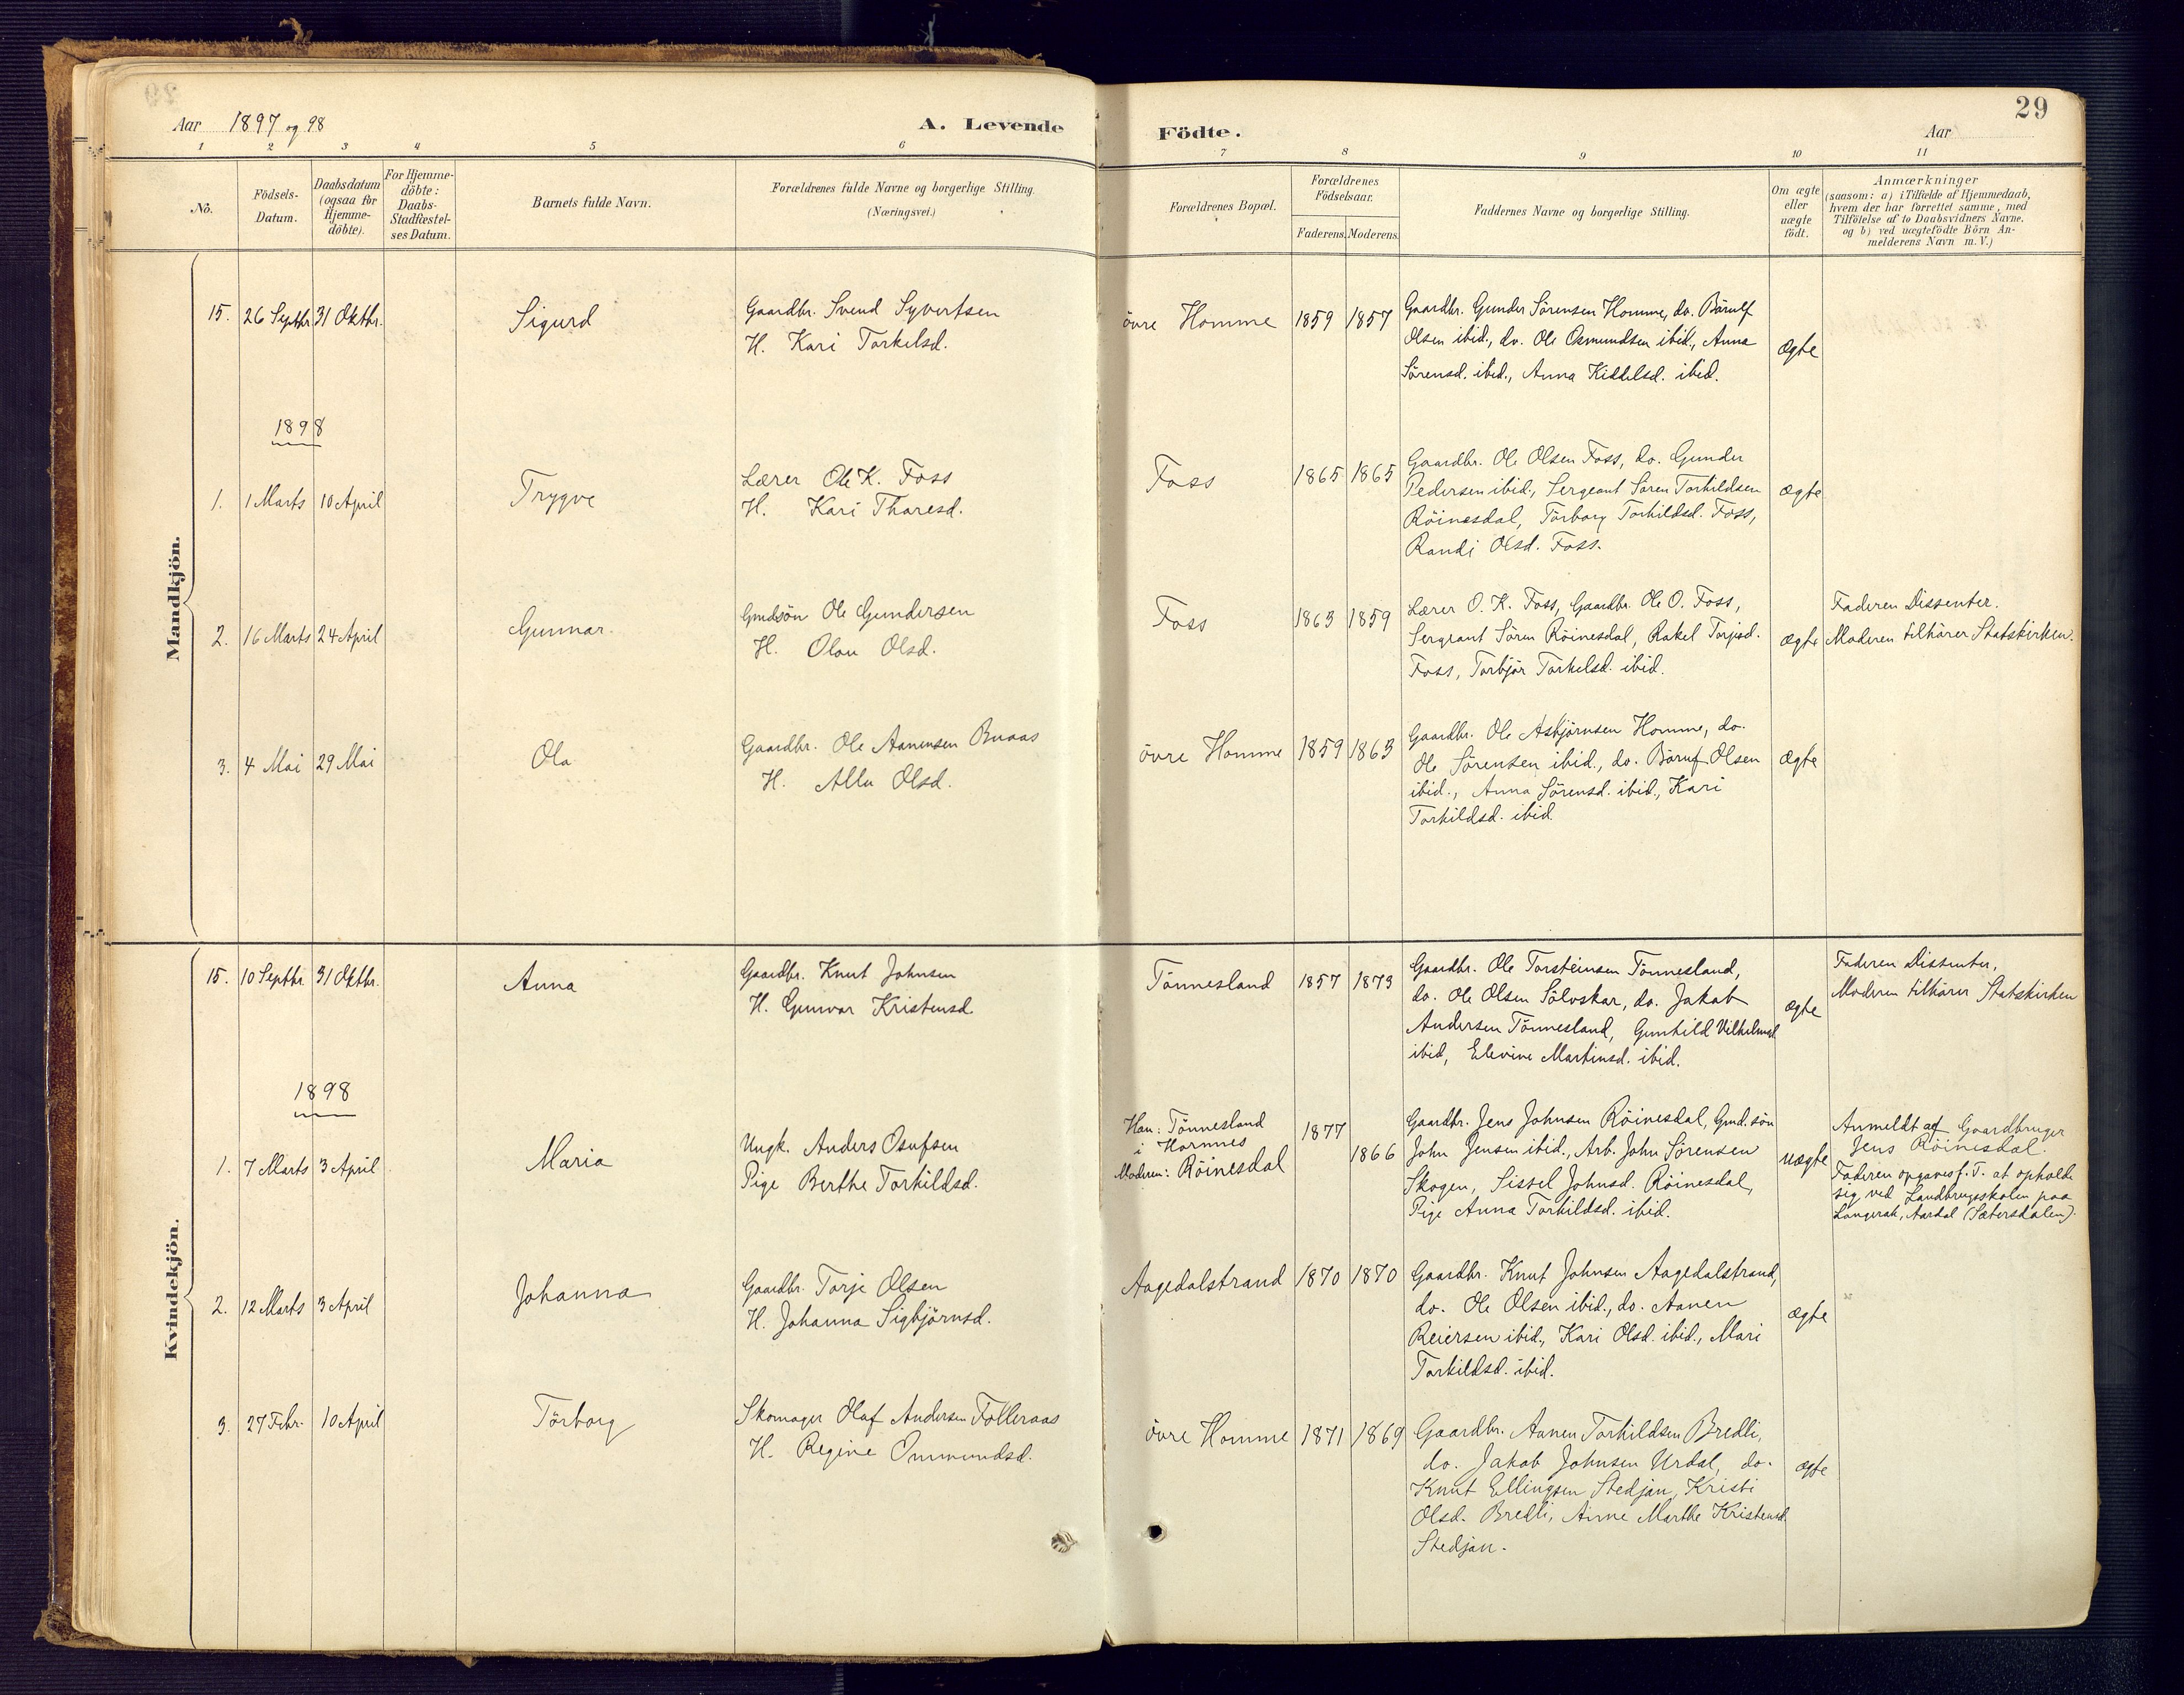 29
Aar 1897 og 98
A. Levende Födte.
Aar
1 2 3 4 5 6 7 8 9 10 11
No.
Födsels-
Datum.
Daabsdatum
(ogsaa for
Hjemme-
döbte).
For Hjemme-
döbte:
Daabs-
Stadfæstel-
ses Datum.
Barnets fulde Navn.
Forældrenes fulde Navne og borgerlige Stilling.
(Næringsvei.)
Forældrenes Bopæl.
Forældrenes
Födselsaar.
Faderens. Moderens.
Faddernes Navne og borgerlige Stilling.
Om ægte
eller
uægte
födt.
Anmærkninger
(saasom: a) i Tilfælde af Hjemmedaab,
hvem der har forrettet samme, med
Tilföielse af to Daabsvidners Navne.
og b) ved uægtefödte Börn An-
melderens Navn m. V.)
Mandkjön.
15. 26 Septbr. 31 Oktbr.
Sigurd
Gaardbr. Svend Syvertsen
H. Kari Torkelsd.
övre Homme 1859 1857
Gaardbr. Gunder Sörensen Homme, do. Börulf
Olsen ibid., do. Ole Osmundsen ibid., Anna
Sörensd. ibid., Anna Kittelsd. ibid.
ægte
1898
1. 1 Marts 10 April
Trygve
Lærer Ole K. Foss
H. Kari Tharesd.
Foss 1865 1865
Gaardbr. Ole Olsen Foss, do. Gunder
Pedersen ibid., Sergeant Sören Torkildsen
Röinesdal, Törborg Torkildsd. Foss,
Randi Olsd. Foss.
ægte
2. 16 Marts 24 April
Gunnar.
Gmdsön Ole Gundersen
H. Olou Olsd.
Foss 1863 1859
Lærer O. K. Foss, Gaardbr. Ole O. Foss,
Sergeant Sören Röinesdal, Rakel Torjesd.
Foss, Torbjör Torkelsd. ibid.
ægte
Faderen Dissenter.
Moderen tilhörer Statskirken.
3. 4 Mai 29 Mai
Ola
Gaardbr. Ole Aanensen Buaas
H. Allu Olsd.
övre Homme 1859 1863
Gaardbr. Ole Asbjörnsen Homme, do.
Ole Sörensen ibid., do. Böruf Olsen
ibid., Anna Sörensd. ibid., Kari
Torkildsd. ibid.
ægte
Kvindekjön.
15. 10 Septbr. 31 Oktbr.
Anna
Gaardbr. Knut Johnsen
H. Gunvor Kristensd.
Tönnesland 1857 1873
Gaardbr. Ole Torsteinsen Tönnesland,
do. Ole Olsen Sölvskar, do. Jakob
Andersen Tönnesland, Gunhild Vilhelmsd.
ibid, Elevine Martinsd. ibid.
ægte
Faderen Dissenter,
Moderen tilhörer Statskirken
1898
1. 7 Marts 3 April
Maria
Ungk. Anders Osufsen
Pige Berthe Torkildsd.
Han: Tönnesland
i Hornnes
Moderen: Röinesdal
1877
1866
Gaardbr. Jens Johnsen Röinesdal, Gmd.sön
John Jensen ibid., Arb. John Sörensen
Skogen, Sissel Johnsd. Röinesdal,
Pige Anna Torkildsd. ibid.
uægte
Anmeldt af Gaardbruger
Jens Röinesdal.
Faderen opgaves f. T. at opholde
sig ved Landbrugsskolen paa
Langerak, Aardal (Sætersdalen).
2. 12 Marts 3 April
Johanna
Gaardbr. Torje Olsen
H. Johanna Sigbjörnsd.
Aagedalstrand 1870 1870
Gaardbr. Knut Johnsen Aagedalstrand,
do. Ole Olsen ibid., do. Aanen
Reiersen ibid., Kari Olsd. ibid., Mari
Torkildsd. ibid.
ægte
3. 27 Febr. 10 April
Törborg
Skomager Olaf Andersen Folleraas
H. Regine Ommundsd.
övre Homme 1871 1869
Gaardbr. Aanen Torkildsen Bredli,
do. Jakob Johnsen Urdal, do.
Knut Ellingsen Stedjan, Kristi
Olsd. Bredli, Anne Marthe Kristensd.
Stedjan.
ægte